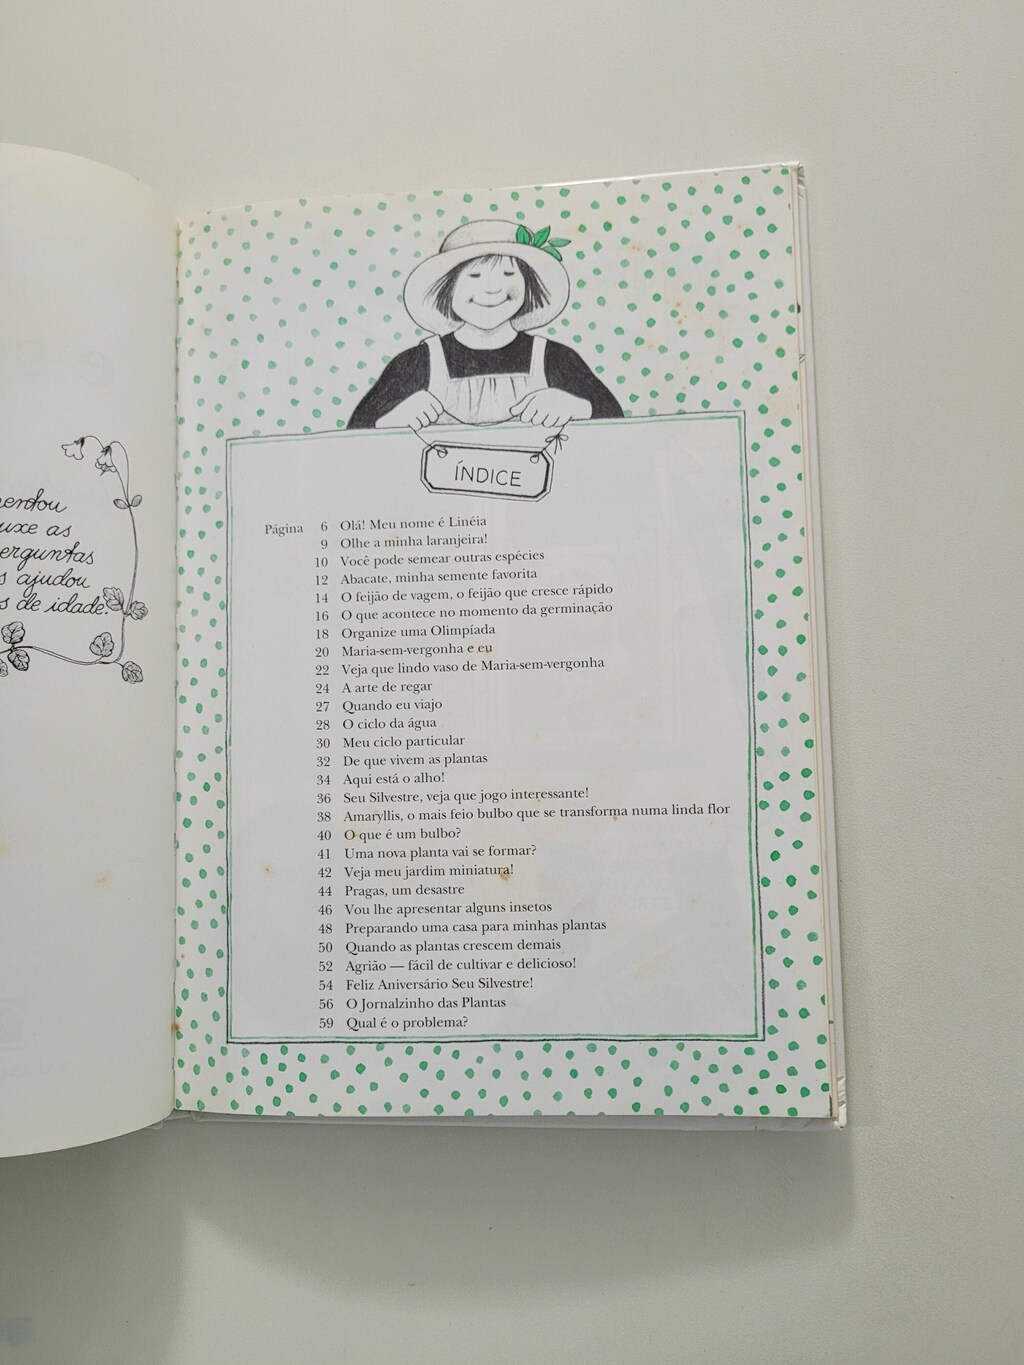 uxe as
s ajudou
s de idade.
ÍNDICE
Página 6 Olá! Meu nome é Linéia
9 Olhe a minha laranjeira!
10 Você pode semear outras espécies
12 Abacate, minha semente favorita
14 O feijão de vagem, o feijão que cresce rápido
16 O que acontece no momento da germinação
18 Organize uma Olimpíada
20 Maria-sem-vergonha e eu
22 Veja que lindo vaso de Maria-sem-vergonha
24 A arte de regar
27 Quando eu viajo
28 O ciclo da água
30 Meu ciclo particular
32 De que vivem as plantas
34 Aqui está o alho!
36 Seu Silvestre, veja que jogo interessante!
38 Amaryllis, o mais feio bulbo que se transforma numa linda flor
40 O que é um bulbo?
41 Uma nova planta vai se formar?
42 Veja meu jardim miniatura!
44 Pragas, um desastre
46 Vou lhe apresentar alguns insetos
48 Preparando uma casa para minhas plantas
50 Quando as plantas crescem demais
52 Agrião — fácil de cultivar e delicioso!
54 Feliz Aniversário Seu Silvestre!
56 O Jornalzinho das Plantas
59 Qual é o problema?